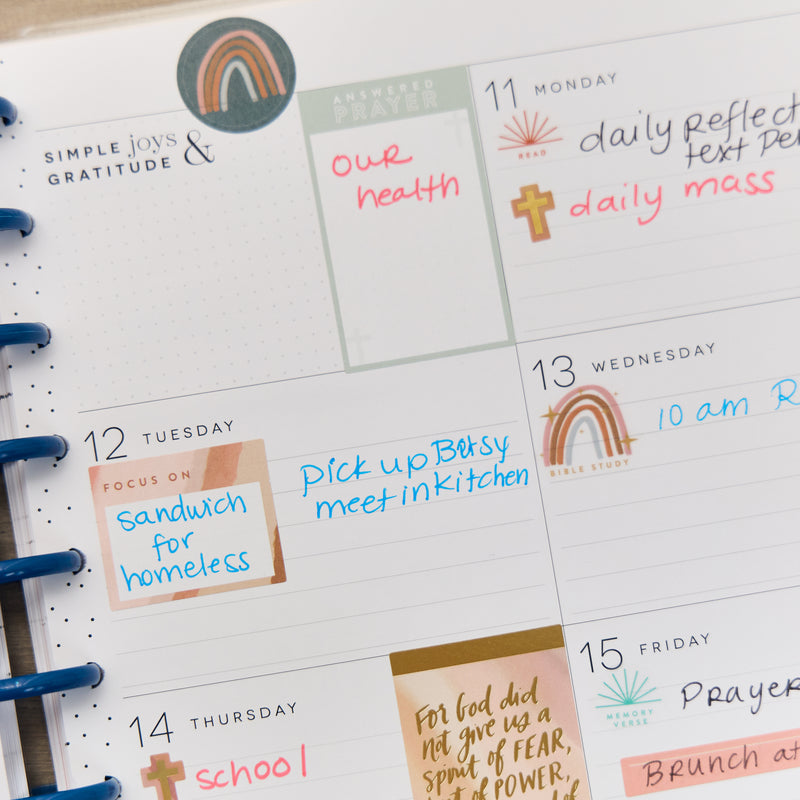 SIMPLE joys &
GRATITUDE
ANSWERED
PRAYER
our
health
11 MONDAY
READ
daily Reflect
text
daily mass
12 TUESDAY
FOCUS ON
sandwich
for
homeless
pick up Betsy
meet in kitchen
13 WEDNESDAY
BIBLE STUDY
10 am R
14 THURSDAY
school
For God did
not give us a
spirit of FEAR,
of POWER,
15 FRIDAY
MEMORY
VERSE
Prayer
Brunch at